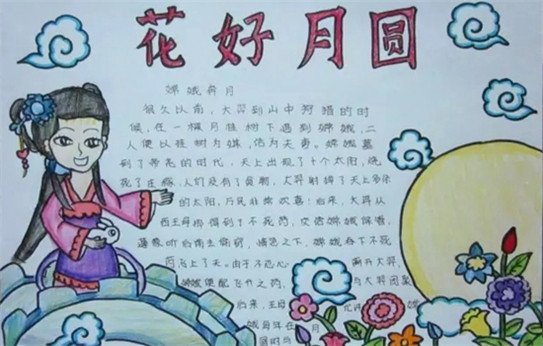 花好月圆
嫦娥奔月
很久以前,大羿到山中狩猎的时
候,在一棵月桂树下遇到嫦娥,二
人便以桂树为媒,结为夫妻。嫦娥
到了帝尧的时代,天上出现了十个太阳,烧
死了庄稼,人们没有了食物,大羿射掉了天上多余
的太阳,万民非常欢喜。后来,大羿从
西王母那得到了不死药,交给嫦娥保管。
逢蒙听后
之下,嫦娥吞下不死
药飞上了天。由于不忍心离开大羿,
嫦娥
与大羿团聚
后来,王母
嫦娥
月